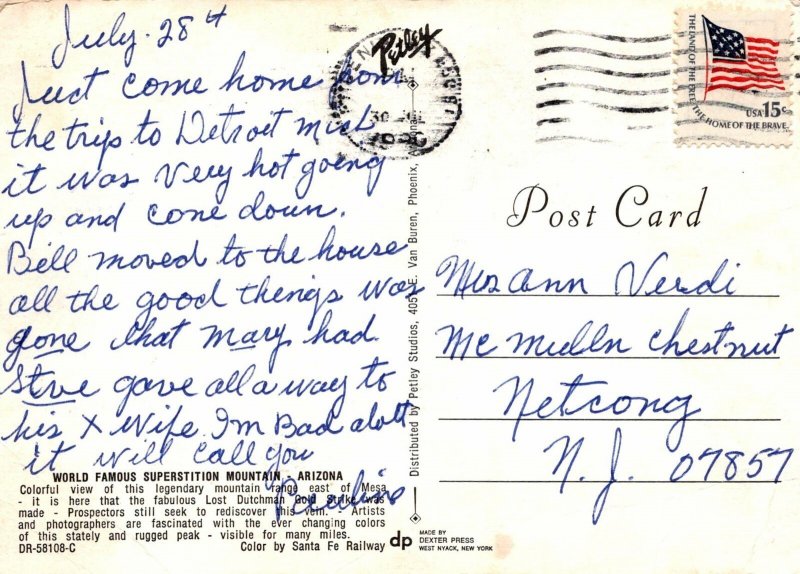 July. 28th
Just come home from
the trips to Detroit Mich
it was Very hot going
up and cone down.
Bill moved to the house
all the good things was
gone that mary had
Stve gave all a way to
his X Wife I'm Bad alott
it will call you
Pauline
WORLD FAMOUS SUPERSTITION MOUNTAIN - ARIZONA
Colorful view of this legendary mountain range east of Mesa
- it is here that the fabulous Lost Dutchman Gold Strike was
made - Prospectors still seek to rediscover this vein. - Artists
and photographers are fascinated with the ever changing colors
of this stately and rugged peak - visible for many miles.
DR-58108-C Color by Santa Fe Railway
Petley
Distributed by Petley Studios, E. Van Buren, Phoenix,
THE LAND OF THE FREE THE HOME OF THE BRAVE
USA 15c
Post Card
Mrs Ann Verdi
Mc mulln chestnut
Netcong
N.J. 07857
dp
MADE BY
DEXTER PRESS
WEST NYACK, NEW YORK